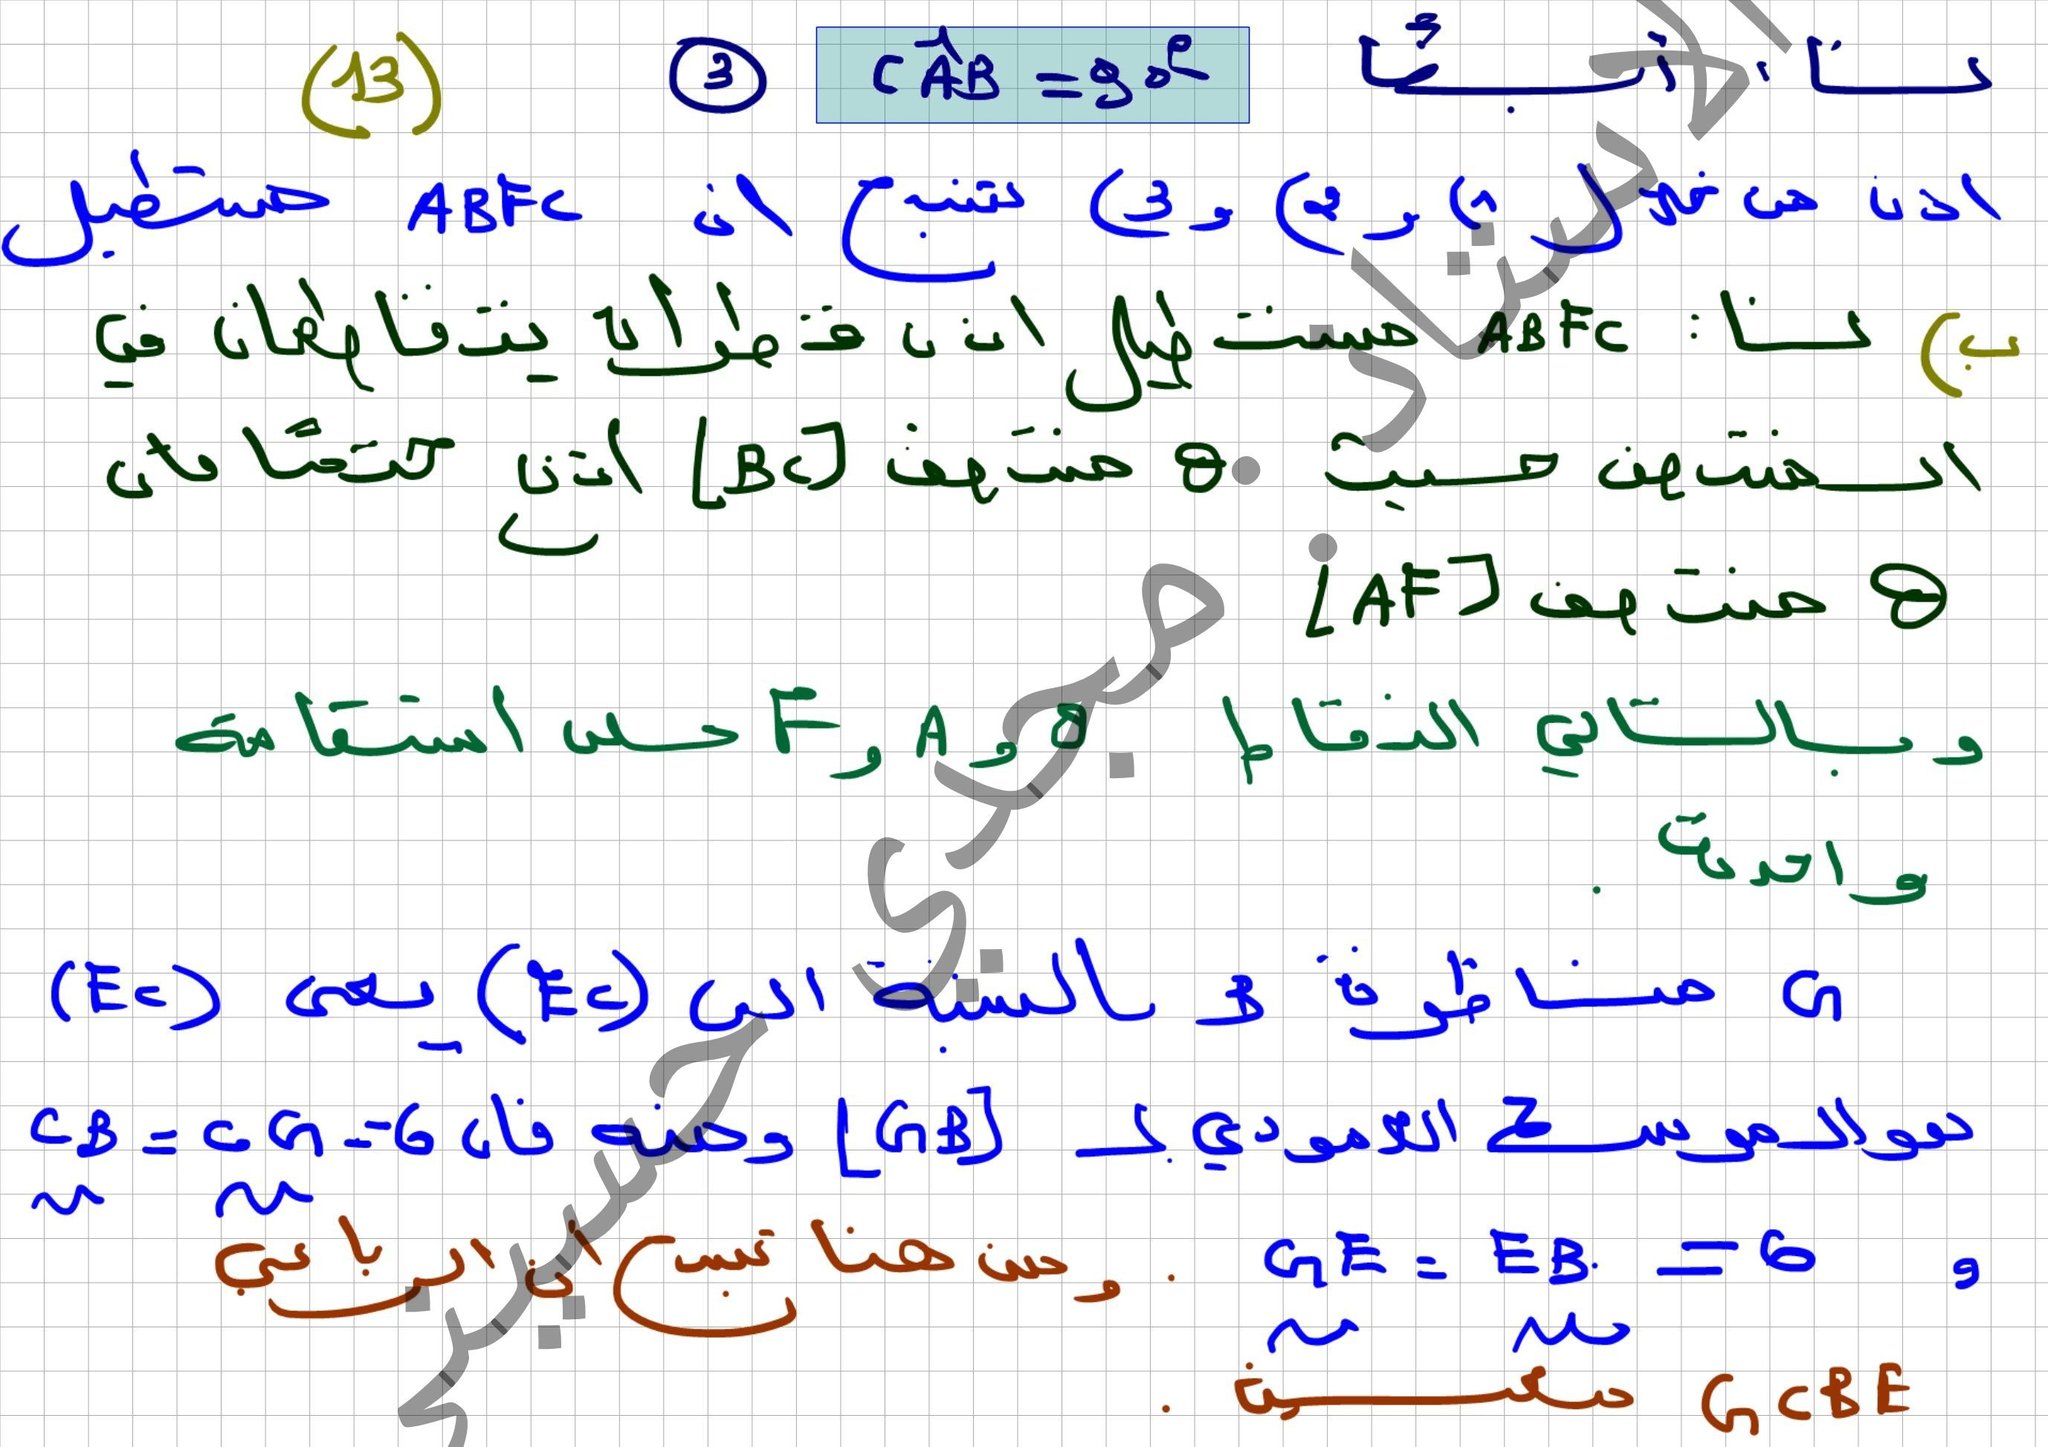 لنا أيضًا: CÂB = 90° ③ (13)
اذن من خلال (1 و (2 و (3 نستنتج ان ABFC مستطيل
ب) لنا: ABFC مستطيل اذن قطراه يتقاطعان في
المنتصف حيث O منتصف [BC] اذن حتمًا فان
O منتصف [AF]
وبالتالي النقاط O و A و F على استقامة
واحدة.
G مناظرة B بالنسبة الى (EC) يعني (EC)
هو الموسط العمودي لـ [GB] ومنه فان CB = CG = 6
و GE = EB = 6. ومن هنا نستنتج ان الرباعي
GCBE معين.
الاستاذ: مجدي